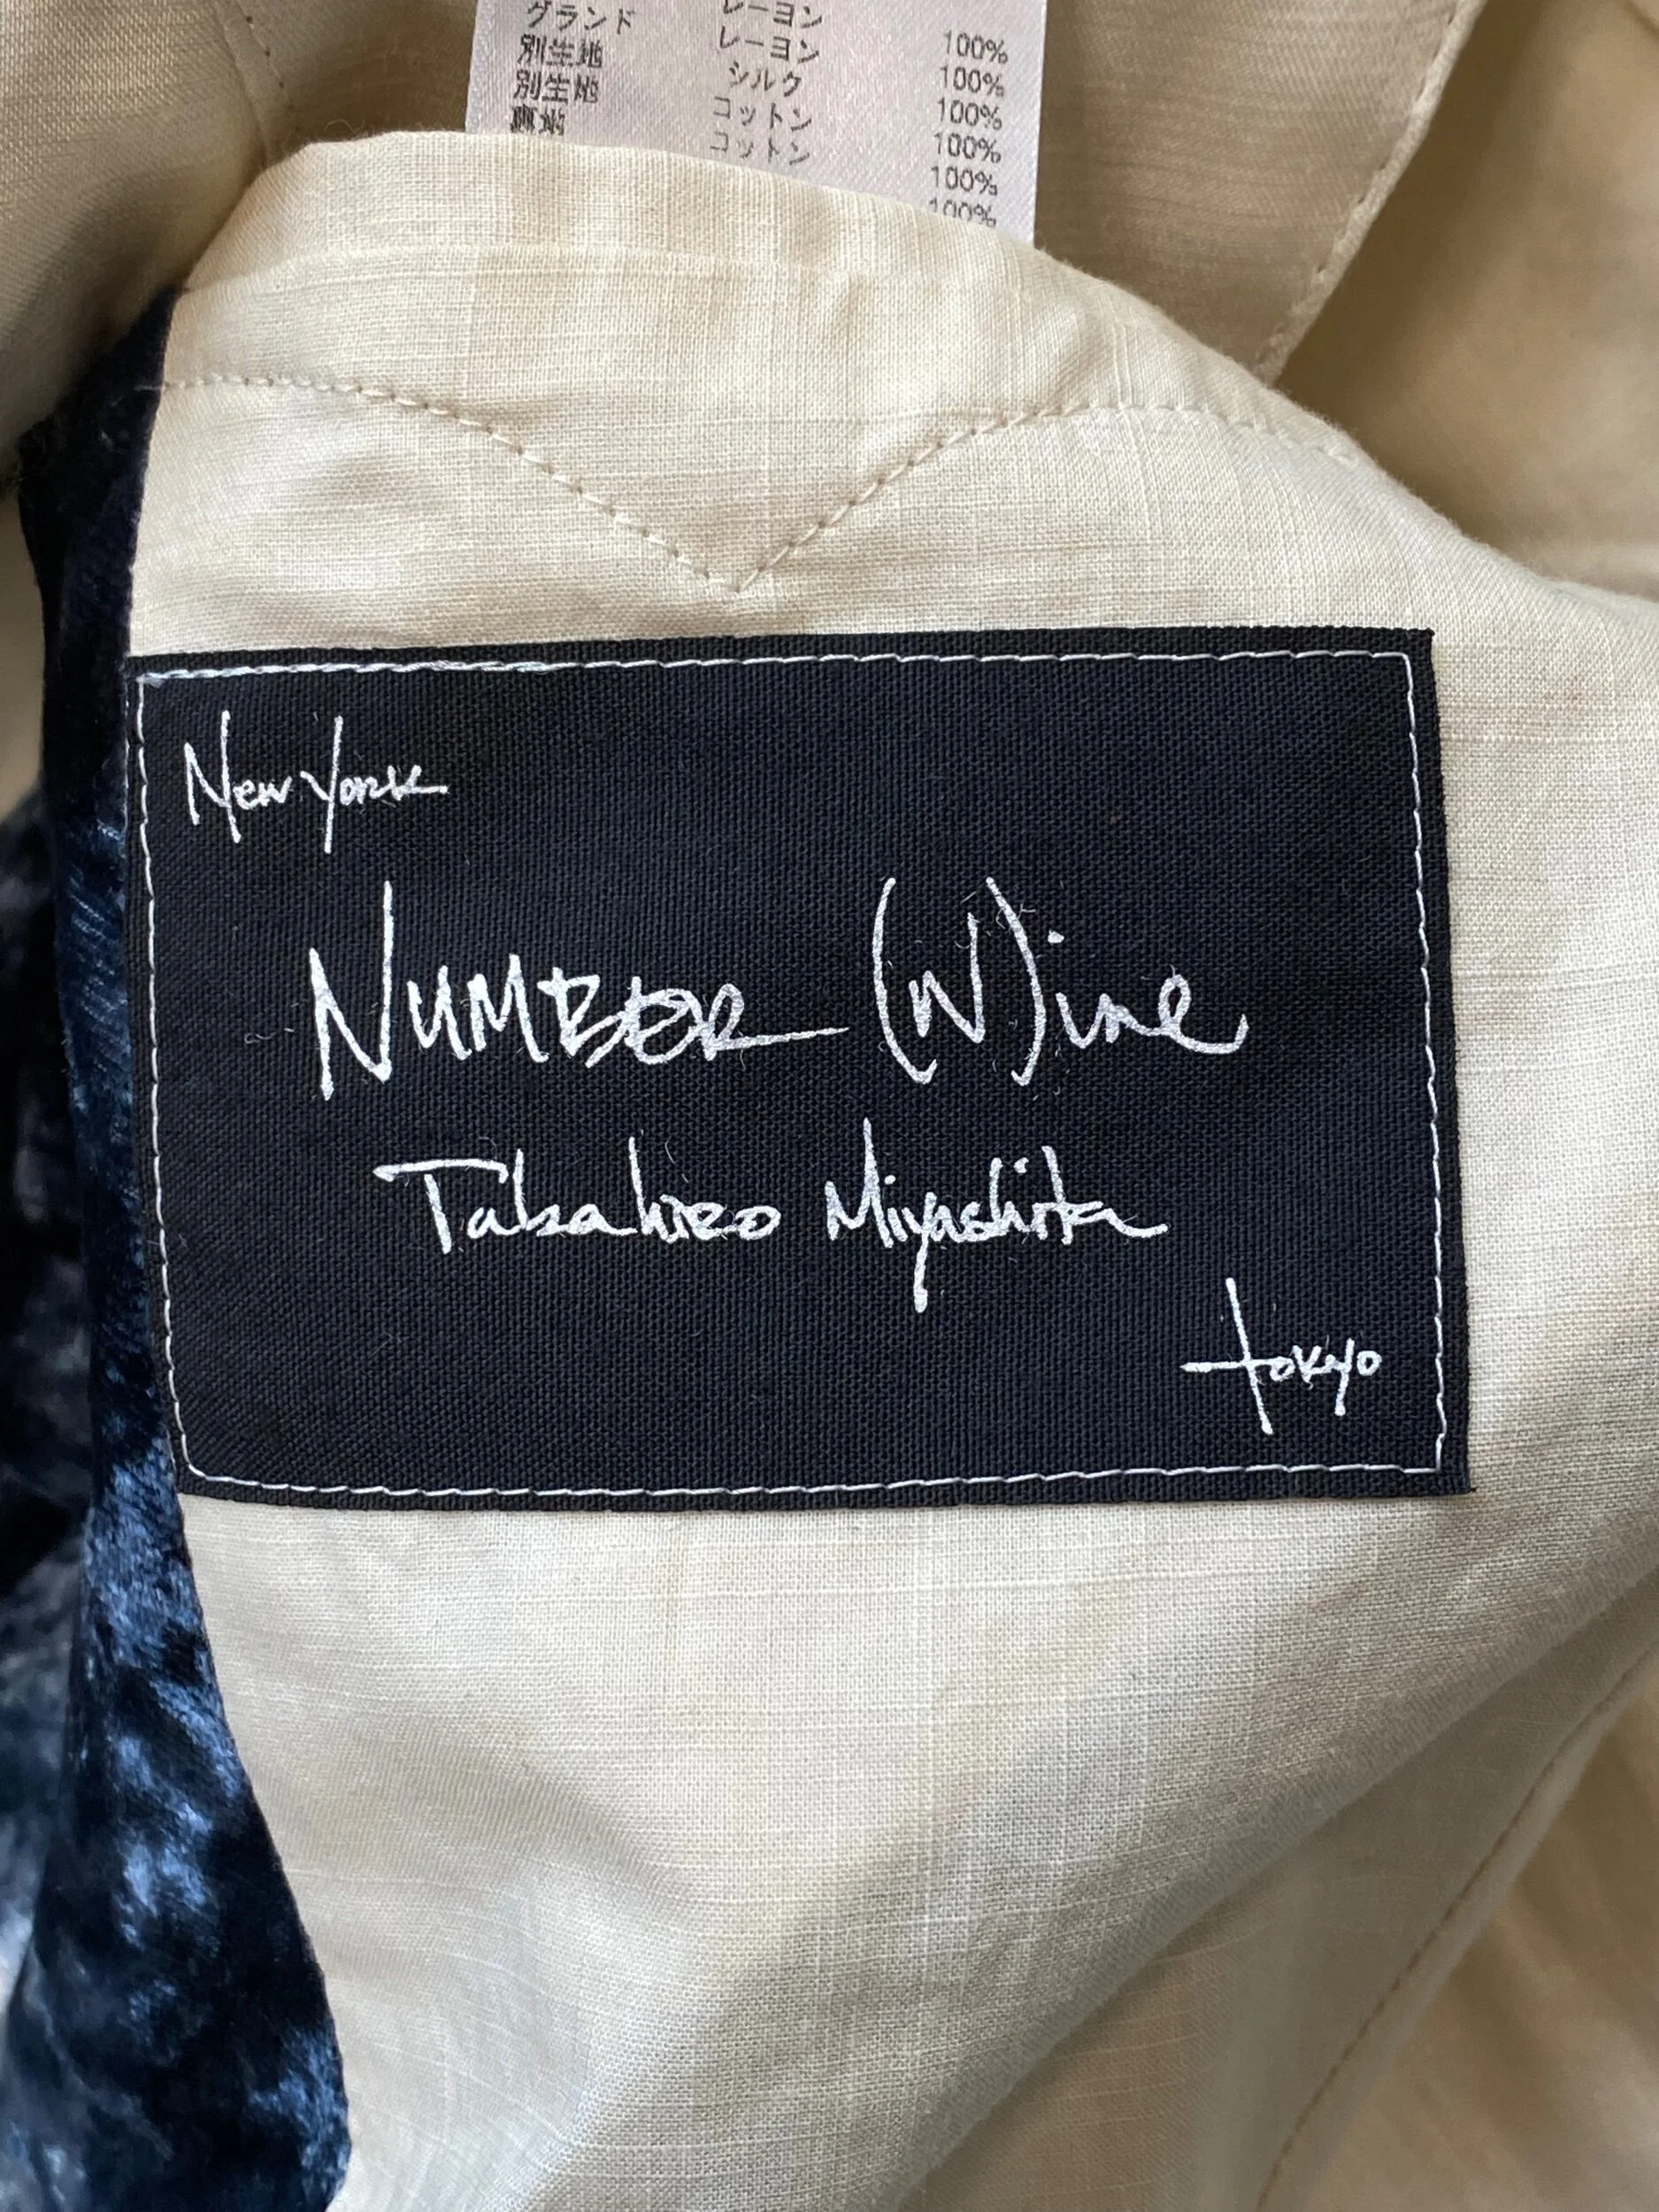 グランド レーヨン
別生地 レーヨン 100%
別生地 シルク 100%
裏地 コットン 100%
コットン 100%
100%
100%
New York
NUMBER (N)ine
Takahiro Miyashita
tokyo